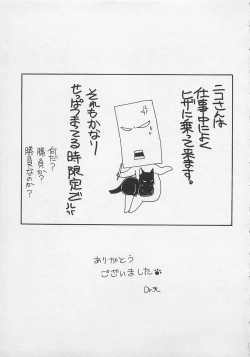 ニコさんは
仕事中によく
ヒザに乗って来ます。
それもかなり
せっぱつまってる時限定でルル
何だ?
勝負か?
勝負なのか?
ありがとう
ございました